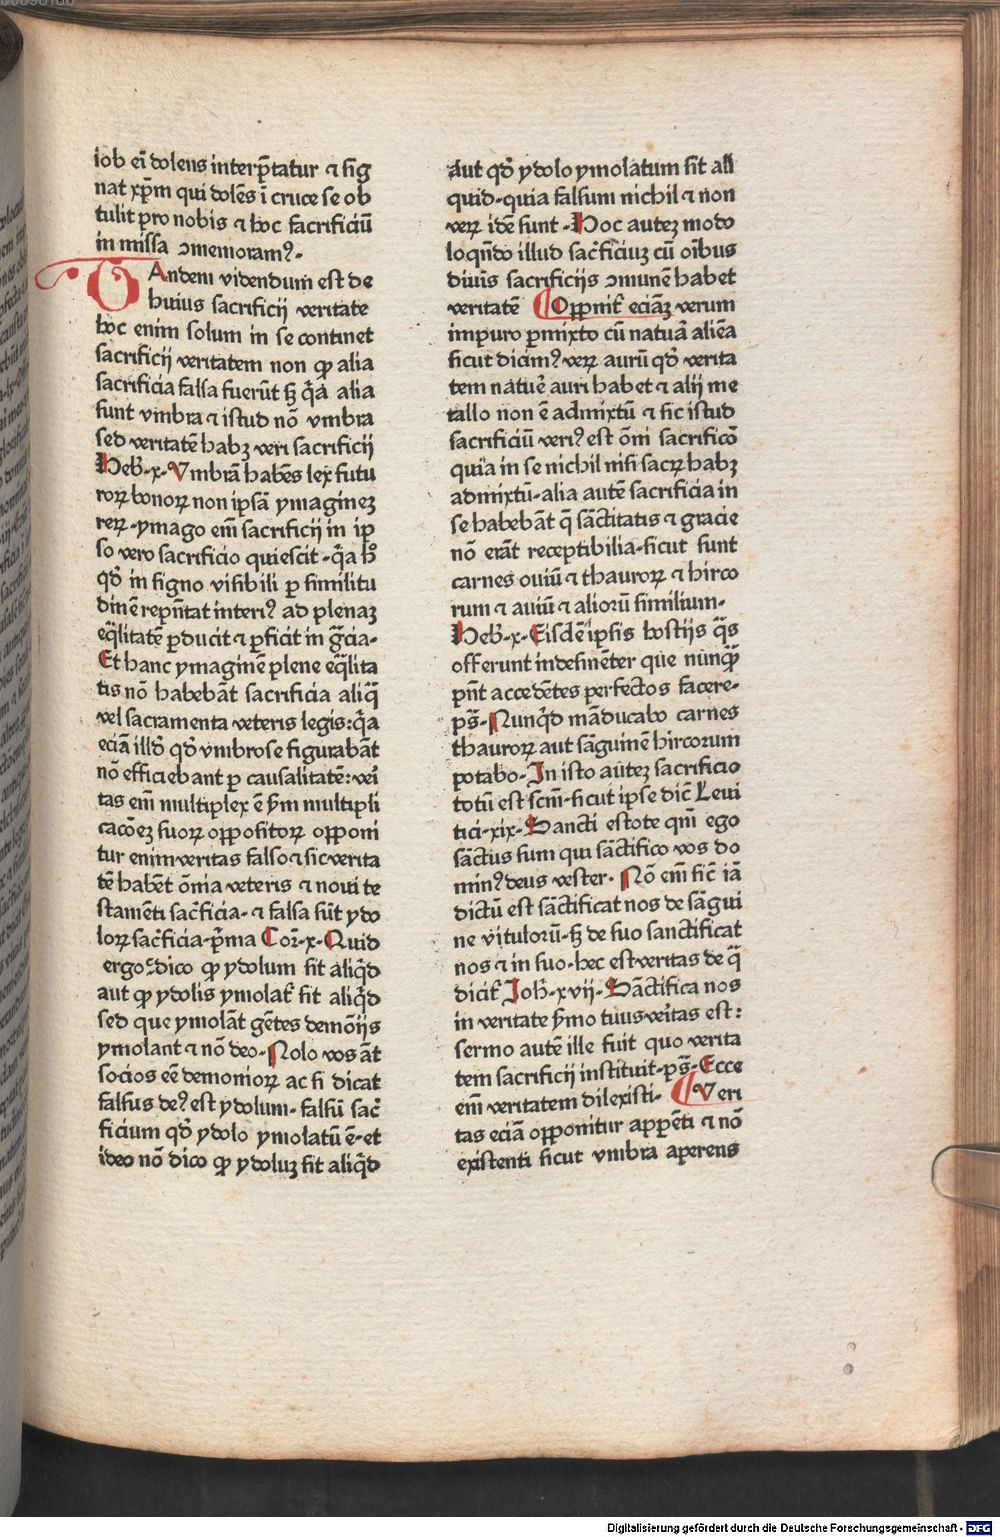 iob ei᷑ dolens interp̄tatur ⁊ sig
nat xp̄m qui dole᷑s ī cruce se ob
tulit pro nobis ⁊ hoc sacrificiū
in missa ↄmemoramꝰ.
TAndem videndum est de
huius sacrificij veritate
hoc enim solum in se continet
sacrificij veritatem non ꝙ alia
sacrificia falsa fuerūt sꝫ q̄a alia
sunt vmbra ⁊ istud nō vmbra
sed veritatē habꝫ veri sacrificij
Heb̄.x. Vmbrā habēs lex futu
roꝝ bonoꝝ non ipsā ymagineꝫ
reꝝ. ymago em̄ sacrificij in ip
so vero sacrificio quiescit. q̄a hͦ
qd̄ in signo visibili ꝑ similitu
dinē repn̄tat interiꝰ ad plenaꝫ
eq̄litatē ꝑducit ⁊ ꝑficit in gr̄cia.
Et hanc ymaginē plene eq̄lita
tis nō habebāt sacrificia aliq̄
vel sacramenta veteris legis: q̄a
eciā illd̄ qd̄ vmbrose figurabāt
nō efficiebant ꝑ causalitatē: veri
tas em̄ multiplex ē ẜm multipli
cacōeꝫ suoꝝ oꝑpositoꝝ oꝑponi
tur enim veritas falso ⁊ sic verita
tē habēt ōnia veteris ⁊ noui te
stamēti sac̄ficia. ⁊ falsa sūt ydo
loꝝ sac̄ficia. p̄ma Cor̄.x. Quid
ergo. dico ꝙ ydolum sit aliq̄d
aut ꝙ ydolis ymolat᷑ sit aliq̄d
sed que ymolāt gētes demōijs
ymolant ⁊ nō deo. Nolo vos āt
socios eē demonioꝝ ac si dicat
falsus deꝰ est ydolum. falsū sac̄
ficium qd̄ ydolo ymolatū ē. et
ideo nō dico ꝙ ydoluꝫ sit aliq̄d
aut qd̄ ydolo ymolatum sit ali
quid. quia falsum nichil ⁊ non
veꝝ idē sunt. Hoc auteꝫ modo
loqn̄do illud sac̄ficiuꝫ cū oībus
diuīs sacrificijs ↄmunē habet
veritatē Oꝑpōit᷑ eciāꝫ verum
impuro ꝑmixto cū natua᷑ aliēa
sicut dicimꝰ veꝝ aurū qd̄ verita
tem natue᷑ auri habet ⁊ alij me
tallo non ē admixtū ⁊ sic istud
sacrificiū veriꝰ est ōni sacrificō
quia in se nichil nisi sacꝝ habꝫ
admixtū. alia autē sacrificia in
se habebāt q̄ sāctitatis ⁊ gracie
nō erāt receptibilia. sicut sunt
carnes ouiū ⁊ thauroꝝ ⁊ hirco
rum ⁊ auiū ⁊ aliorū similium.
Heb̄.x. Eisdē ipsis hostijs q̄s
offerunt indesinēter que nūnq̄ꝫ
pn̄t accedētes perfectos facere.
pꝰs̄. Nunq̄d māducabo carnes
thauroꝝ aut sāguinē hircorum
potabo. In isto auteꝫ sacrificio
totū est scm̄. sicut ipse dic̄ Leui
tici.xix. Sancti estote qm̄ ego
sāctus sum qui sāctifico vos do
minꝰ deus vester. Nō em̄ sic̄ iā
dictū est sāctificat nos de sāgui
ne vitulorū. sꝫ de suo sanctificat
nos ⁊ in suo. hec est veritas de q̄
dicit᷑ Joh̄.xvij. Sāctifica nos
in veritate ẜmo tuus veritas est:
sermo autē ille fuit quo verita
tem sacrificij instituit. ps̄. Ecce
em̄ veritatem dilexisti. Veri
tas eciā oꝑponitur apꝑēti ⁊ nō
existenti sicut vmbra aperens
Digitalisierung gefördert durch die Deutsche Forschungsgemeinschaft - DFG